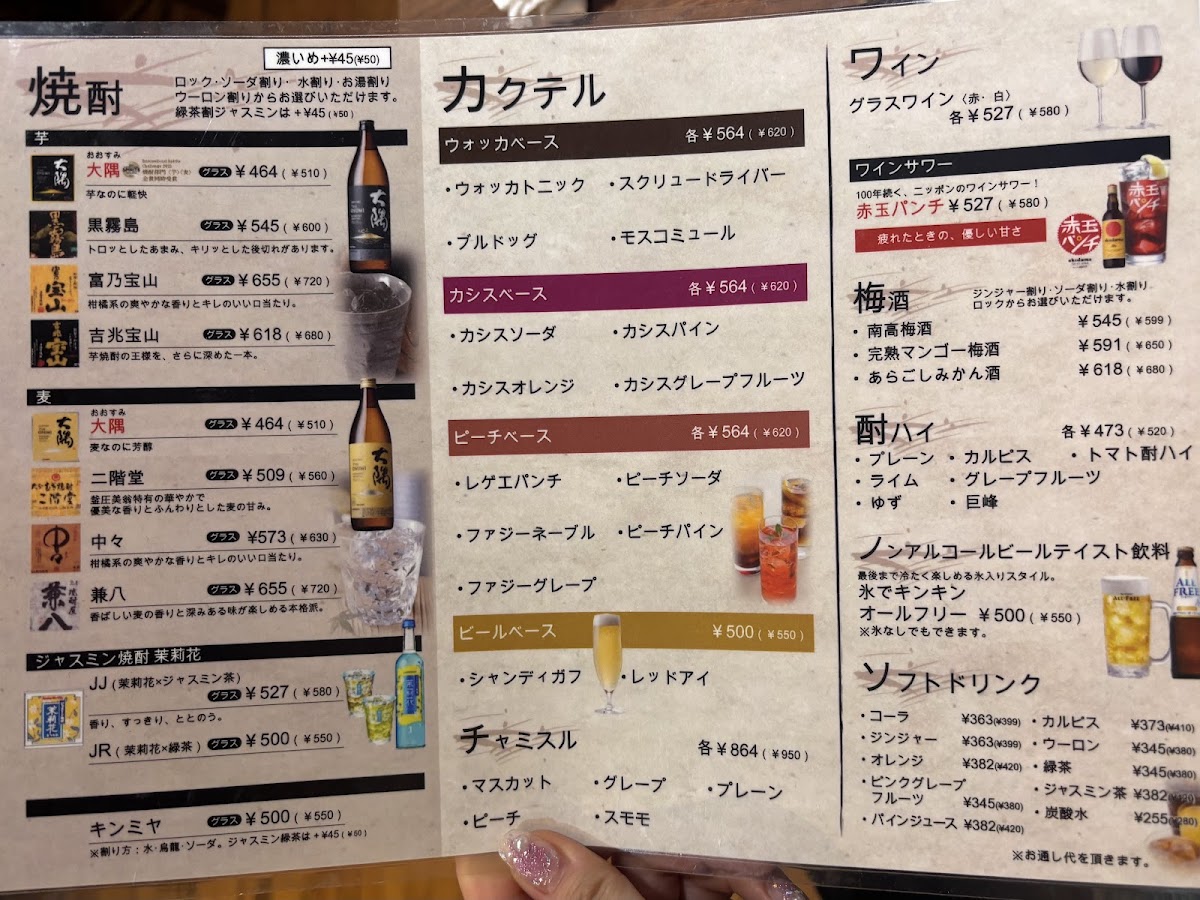 焼酎
濃いめ+¥45(¥50)
ロック・ソーダ割り・ 水割り・お湯割り
ウーロン割りからお選びいただけます。
緑茶割ジャスミンは＋¥45(¥50)
芋
おおすみ
大隅 グラス ¥464(¥510)
芋なのに軽快
黒霧島 グラス ¥545(¥600)
トロッとしたあまみ、キリッとした後切れがあります。
富乃宝山 グラス ¥655(¥720)
柑橘系の爽やかな香りとキレのいい口当たり。
吉兆宝山 グラス ¥618(¥680)
芋焼酎の王様を、さらに深めた一本。
麦
おおすみ
大隅 グラス ¥464(¥510)
麦なのに芳醇
二階堂 グラス ¥509(¥560)
優美な香りとふんわりとした麦の甘み。
中々 グラス ¥573(¥630)
柑橘系の爽やかな香りとキレのいい口当たり。
兼八 グラス ¥655(¥720)
香ばしい麦の香りと深みある味が楽しめる本格派。
ジャスミン焼酎 茉莉花
JJ(茉莉花×ジャスミン茶)
グラス ¥527(¥580)
香り、すっきり、ととのう。
JR(茉莉花×緑茶) グラス ¥500(¥550)
キンミヤ グラス ¥500(¥550)
※割り方：水・烏龍・ソーダ。ジャスミン緑茶は＋¥45(¥50)
カクテル
ウォッカベース 各¥564(¥620)
・ウォッカトニック ・スクリュードライバー
・ブルドッグ ・モスコミュール
カシスベース 各¥564(¥620)
・カシスソーダ ・カシスパイン
・カシスオレンジ ・カシスグレープフルーツ
ピーチベース 各¥564(¥620)
・レゲエパンチ ・ピーチソーダ
・ファジーネーブル ・ピーチパイン
・ファジーグレープ
ビールベース ¥500(¥550)
・シャンディガフ ・レッドアイ
チャミスル 各¥864(¥950)
・マスカット ・グレープ ・プレーン
・ピーチ ・スモモ
ワイン
グラスワイン〈赤・白〉
各¥527(¥580)
ワインサワー
100年続く、ニッポンのワインサワー！
赤玉パンチ ¥527(¥580)
疲れたときの、優しい甘さ
赤玉パンチ
赤玉パンチ
梅酒
ジンジャー割り・ソーダ割り・水割り
ロックからお選びいただけます。
・南高梅酒 ¥545(¥599)
・完熟マンゴー梅酒 ¥591(¥650)
・あらごしみかん酒 ¥618(¥680)
酎ハイ 各¥473(¥520)
・プレーン ・カルピス ・トマト酎ハイ
・ライム ・グレープフルーツ
・ゆず ・巨峰
ノンアルコールビールテイスト飲料
最後まで冷たく楽しめる氷入りスタイル。
氷でキンキン
オールフリー ¥500(¥550)
※氷なしでもできます。
ALL FREE
ソフトドリンク
・コーラ ¥363(¥399) ・カルピス ¥373(¥410)
・ジンジャー ¥363(¥399) ・ウーロン ¥345(¥380)
・オレンジ ¥382(¥420) ・緑茶 ¥345(¥380)
・ピンクグレープ
フルーツ ¥345(¥380) ・ジャスミン茶 ¥382
・パインジュース ¥382(¥420) ・炭酸水 ¥255(¥280)
※お通し代を頂きます。